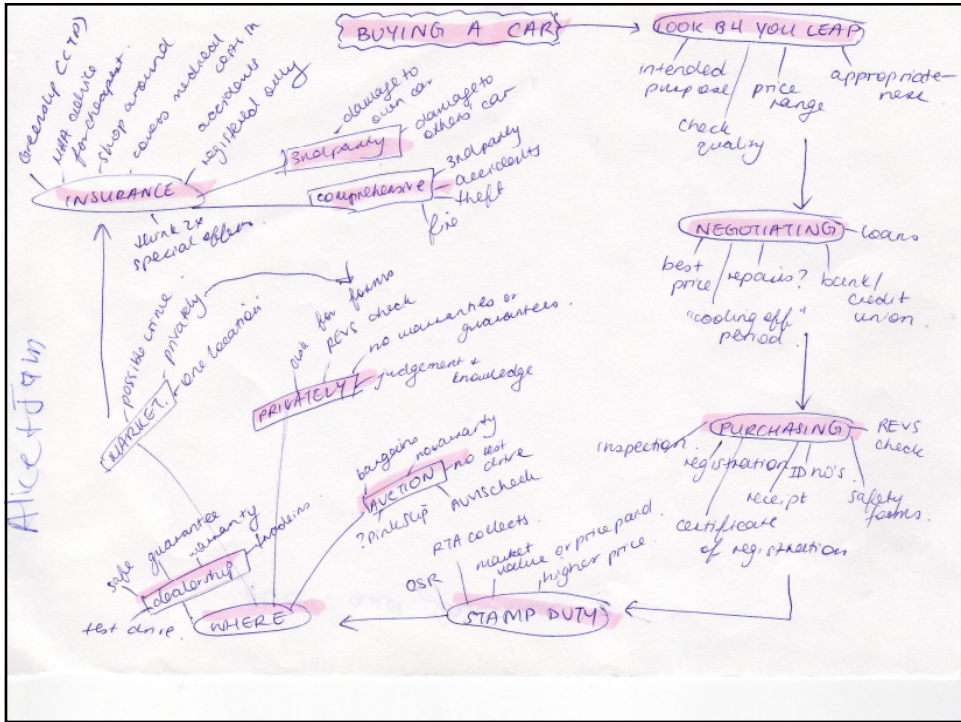 BUYING A CAR
LOOK B4 YOU LEAP
intended
purpose
check
quality
price
range
appropriate-
ness
NEGOTIATING
loans
best
price
"cooling off"
period.
repairs?
bank/
credit
union.
PURCHASING
REVS
check
inspection.
registration
certificate
of registration
receipt
ID no's.
safety
forms.
STAMP DUTY
OSR
RTA collects
market
value or price paid
higher price.
WHERE
dealership
test drive.
safe
guarantee
warranty
tradeins
AUCTION
bargains
no warranty
no test
drive
?pinkslip
PRIVATELY
ask for forms
REVS check
no warranties or
guarantees.
judgement &
knowledge
MARKET.
possible crime
privately
one location
INSURANCE
Greenslip (CTP)
for cheapest
shop around
covers medical
costs in
accidents
registered only
think 2x
special offers
3rd party
damage to
own car
damage to
others car
comprehensive
3rd party
accidents
theft
fire
Alice + Jam